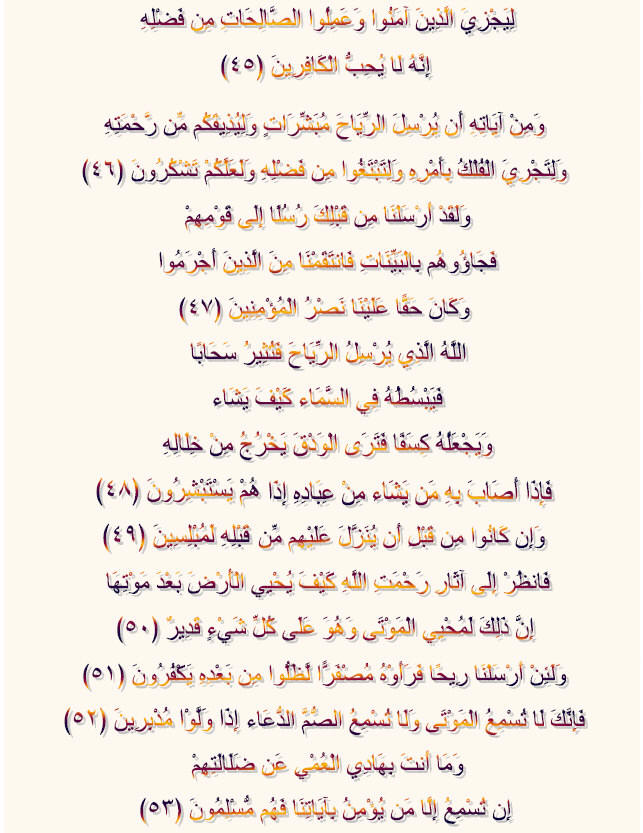 لِيَجْزِيَ الَّذِينَ آمَنُوا وَعَمِلُوا الصَّالِحَاتِ مِن فَضْلِهِ
إِنَّهُ لَا يُحِبُّ الْكَافِرِينَ (٤٥)
وَمِنْ آيَاتِهِ أَن يُرْسِلَ الرِّيَاحَ مُبَشِّرَاتٍ وَلِيُذِيقَكُم مِّن رَّحْمَتِهِ
وَلِتَجْرِيَ الْفُلْكُ بِأَمْرِهِ وَلِتَبْتَغُوا مِن فَضْلِهِ وَلَعَلَّكُمْ تَشْكُرُونَ (٤٦)
وَلَقَدْ أَرْسَلْنَا مِن قَبْلِكَ رُسُلًا إِلَى قَوْمِهِمْ
فَجَاؤُوهُم بِالْبَيِّنَاتِ فَانتَقَمْنَا مِنَ الَّذِينَ أَجْرَمُوا
وَكَانَ حَقًّا عَلَيْنَا نَصْرُ الْمُؤْمِنِينَ (٤٧)
اللَّهُ الَّذِي يُرْسِلُ الرِّيَاحَ فَتُثِيرُ سَحَابًا
فَيَبْسُطُهُ فِي السَّمَاء كَيْفَ يَشَاء
وَيَجْعَلُهُ كِسَفًا فَتَرَى الْوَدْقَ يَخْرُجُ مِنْ خِلَالِهِ
فَإِذَا أَصَابَ بِهِ مَن يَشَاء مِنْ عِبَادِهِ إِذَا هُمْ يَسْتَبْشِرُونَ (٤٨)
وَإِن كَانُوا مِن قَبْلِ أَن يُنَزَّلَ عَلَيْهِم مِّن قَبْلِهِ لَمُبْلِسِينَ (٤٩)
فَانظُرْ إِلَى آثَارِ رَحْمَتِ اللَّهِ كَيْفَ يُحْيِي الْأَرْضَ بَعْدَ مَوْتِهَا
إِنَّ ذَلِكَ لَمُحْيِي الْمَوْتَى وَهُوَ عَلَى كُلِّ شَيْءٍ قَدِيرٌ (٥٠)
وَلَئِنْ أَرْسَلْنَا رِيحًا فَرَأَوْهُ مُصْفَرًّا لَّظَلُّوا مِن بَعْدِهِ يَكْفُرُونَ (٥١)
فَإِنَّكَ لَا تُسْمِعُ الْمَوْتَى وَلَا تُسْمِعُ الصُّمَّ الدُّعَاء إِذَا وَلَّوْا مُدْبِرِينَ (٥٢)
وَمَا أَنتَ بِهَادِي الْعُمْيِ عَن ضَلَالَتِهِمْ
إِن تُسْمِعُ إِلَّا مَن يُؤْمِنُ بِآيَاتِنَا فَهُم مُّسْلِمُونَ (٥٣)